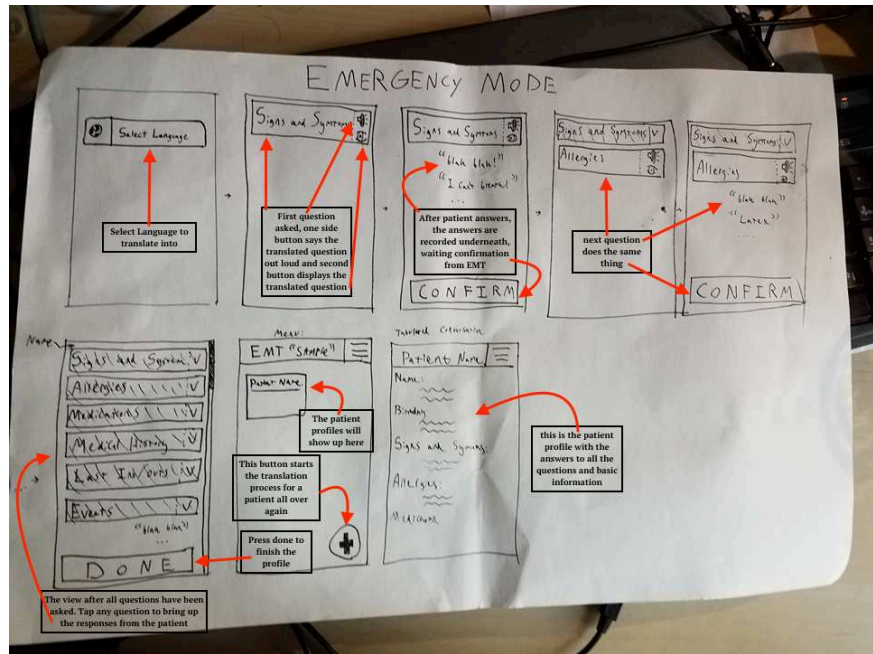 EMERGENCY MODE
Select Language
Select Language to
translate into
Signs and Symtoms
First question
asked, one side
button says the
translated question
out loud and second
button displays the
translated question
Signs and Symtoms
"blah blah!"
"I can't breath!"
...
After patient answers,
the answers are
recorded underneath,
waiting confirmation
from EMT
CONFIRM
Signs and Symptoms V
Allergies
next question
does the same
thing
Signs and Symtoms V
Allergies
"blah blah"
"Latex"
....
CONFIRM
Name
Signs and Symtoms V
Allergies V
Medications V
Medical History V
Last In/outs V
Events V
"blah blah"
...
DONE
The view after all questions have been
asked. Tap any question to bring up
the responses from the patient
Press done to
finish the
profile
Menu:
EMT "SAMPLE"
Patient Name
The patient
profiles will
show up here
This button starts
the translation
process for a
patient all over
again
Patient Name
Name:
Birthday
Signs and Symtoms:
Allergies:
this is the patient
profile with the
answers to all the
questions and basic
information